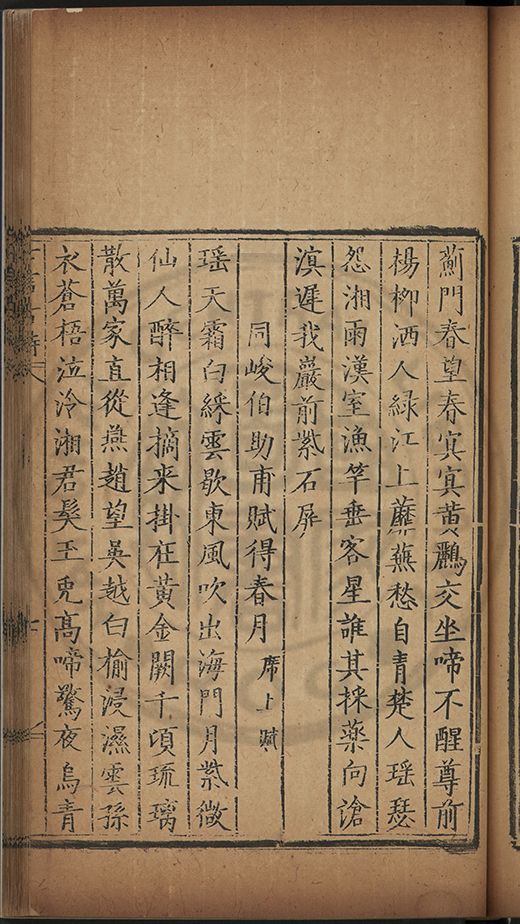 薊門春望春寅寅黄鸝交坐啼不醒尊前
楊柳洒人緑江上蘼蕪愁自青楚人瑶瑟
怨湘雨漢室漁竿垂客星誰其採藥向滄
滇遲我巖前紫石屏
同峻伯助甫賦得春月 席上賦
瑶天霜白綵雲歇東風吹出海門月紫微
仙人醉相逢摘来掛在黄金闕千頃琉璃
散萬家直從燕趙望吳越白榆浸濕雲孫
衣蒼梧泣泠湘君髮玉兎髙啼驚夜烏青